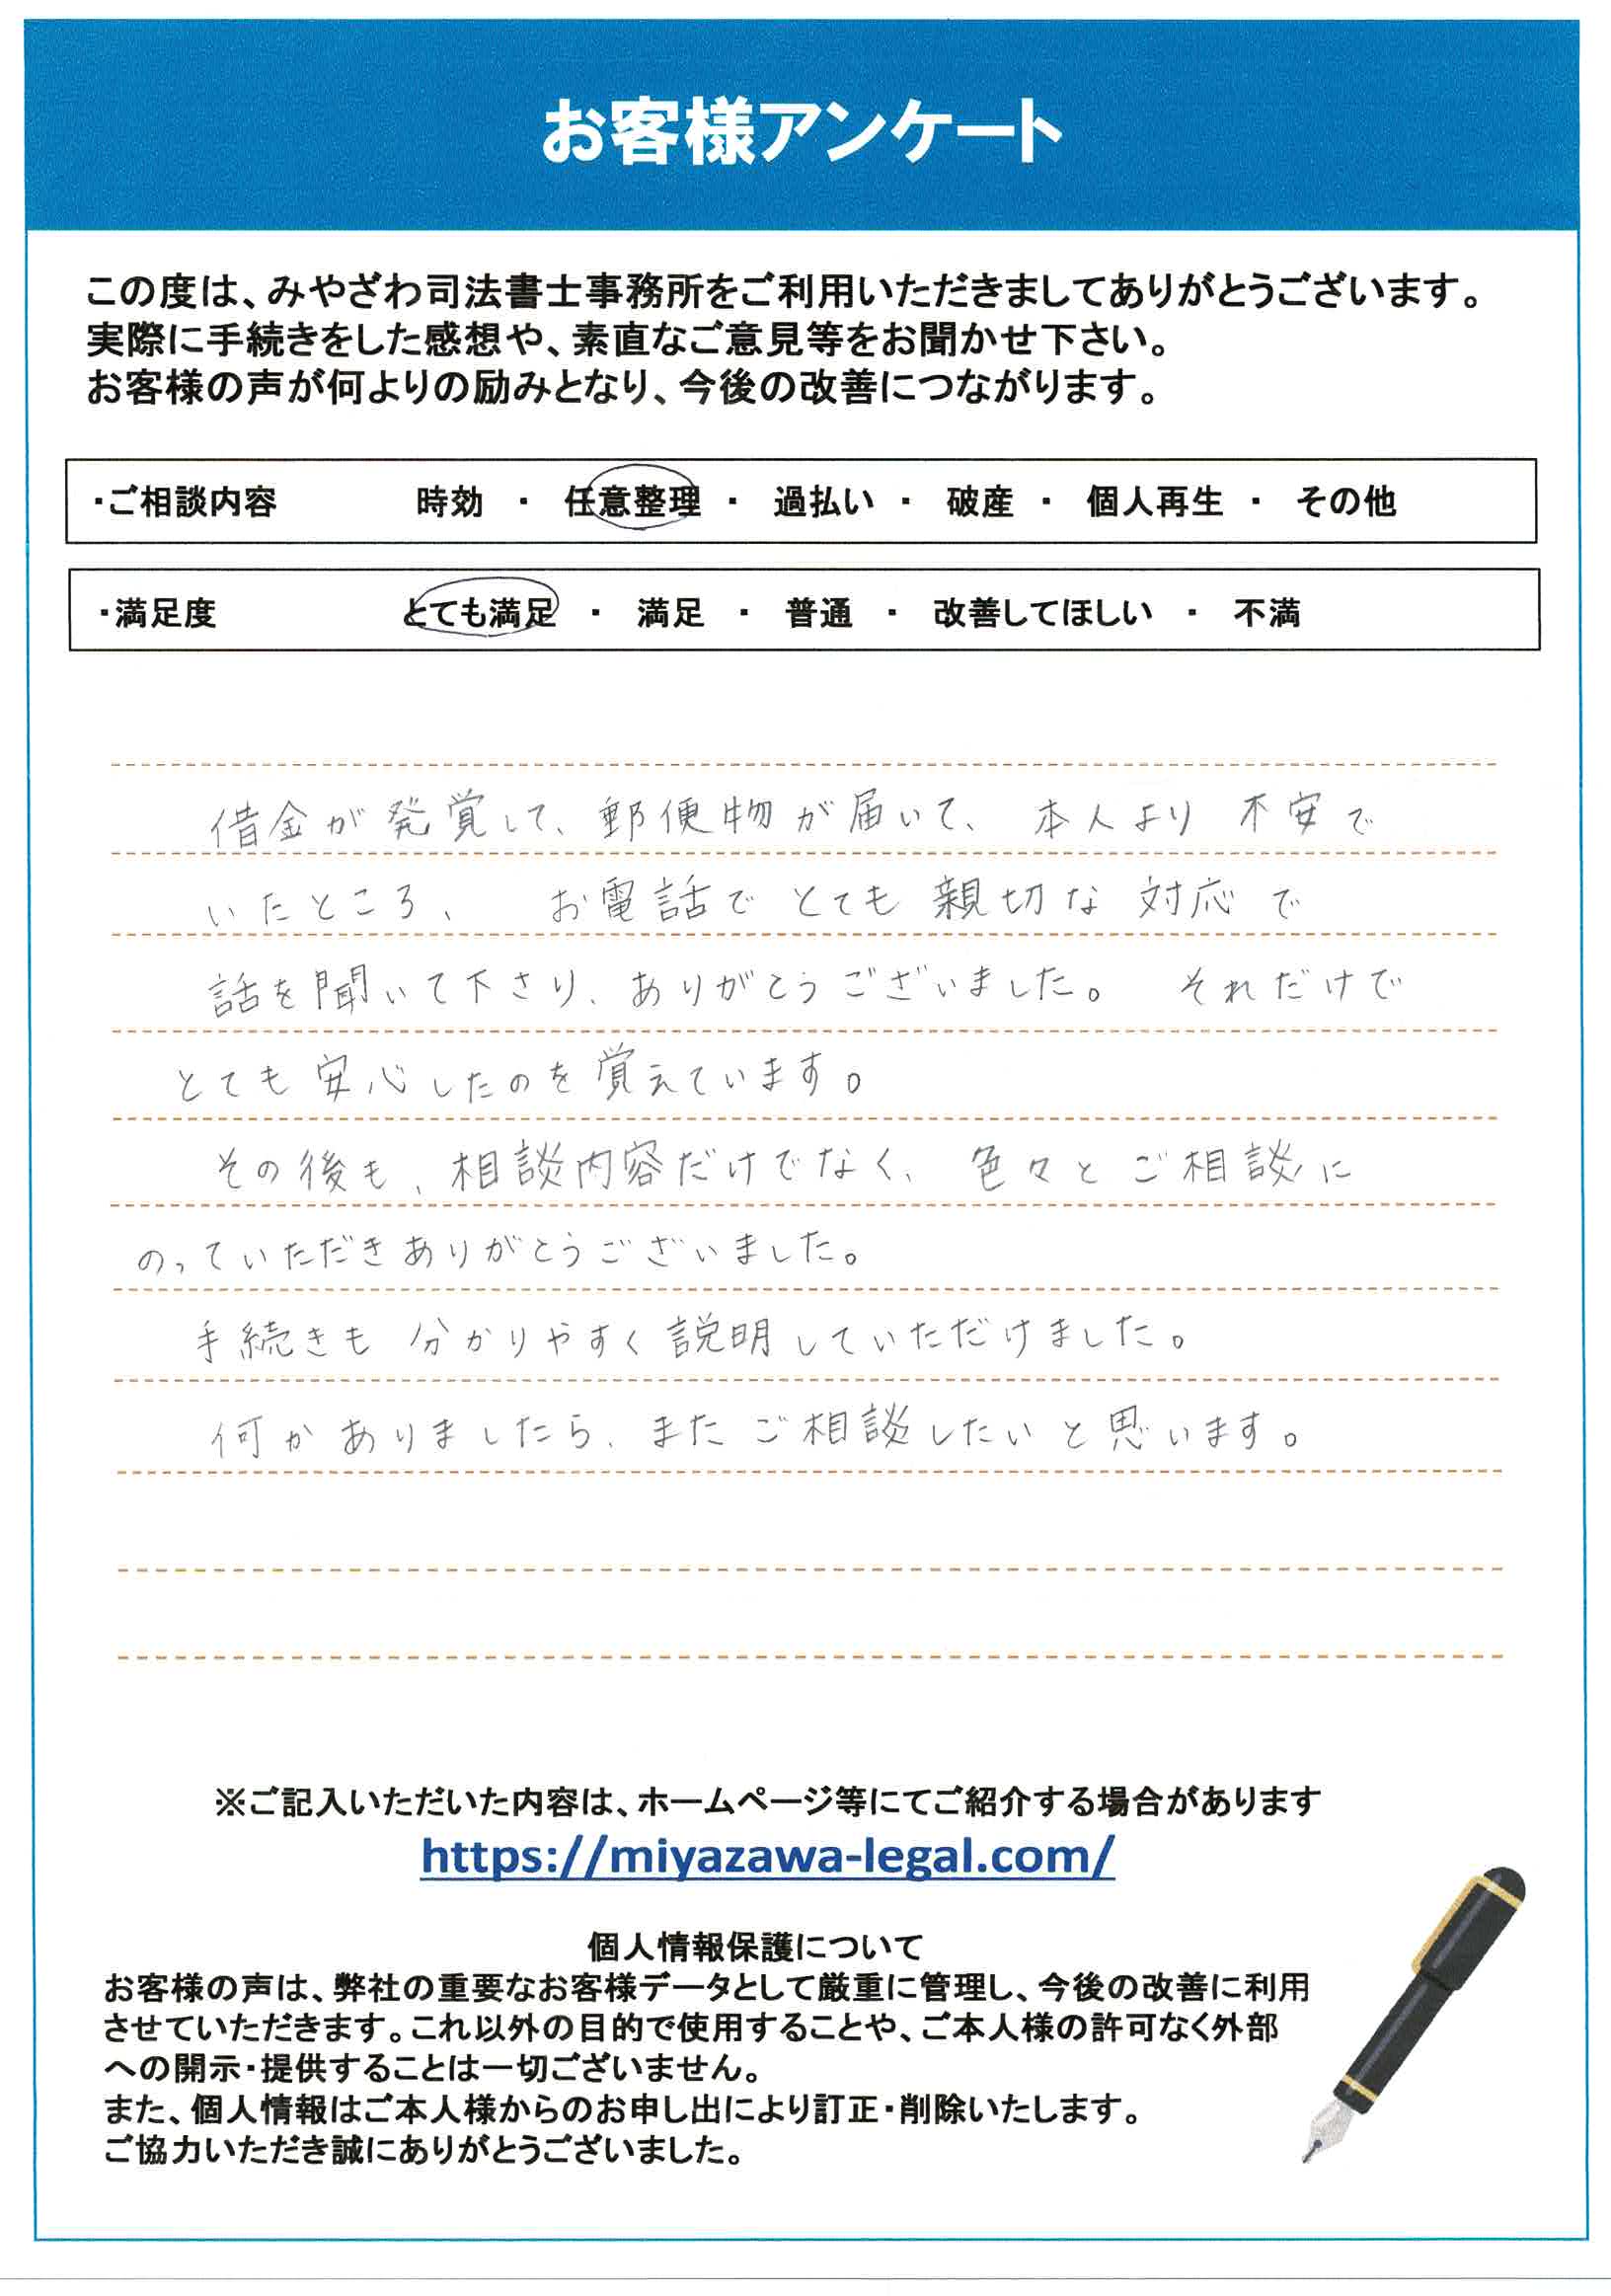 お客様アンケート
この度は、みやざわ司法書士事務所をご利用いただきましてありがとうございます。
実際に手続きをした感想や、素直なご意見等をお聞かせ下さい。
お客様の声が何よりの励みとなり、今後の改善につながります。
・ご相談内容 時効 ・ 任意整理 ・ 過払い ・ 破産 ・ 個人再生 ・ その他
・満足度 とても満足 ・ 満足 ・ 普通 ・ 改善してほしい ・ 不満
借金が発覚して、郵便物が届いて、本人より不安で
いたところ、お電話でとても親切な対応で
話を聞いて下さり、ありがとうございました。それだけで
とても安心したのを覚えています。
その後も、相談内容だけでなく、色々とご相談に
のっていただきありがとうございました。
手続きも分かりやすく説明していただけました。
何かありましたら、またご相談したいと思います。
※ご記入いただいた内容は、ホームページ等にてご紹介する場合があります
https://miyazawa-legal.com/
個人情報保護について
お客様の声は、弊社の重要なお客様データとして厳重に管理し、今後の改善に利用
させていただきます。これ以外の目的で使用することや、ご本人様の許可なく外部
への開示・提供することは一切ございません。
また、個人情報はご本人様からのお申し出により訂正・削除いたします。
ご協力いただき誠にありがとうございました。